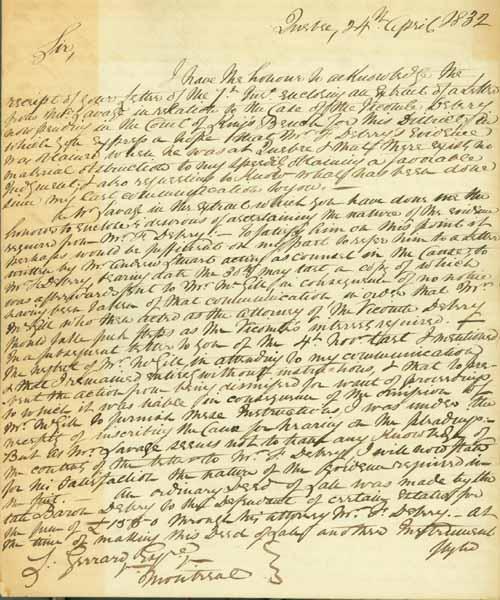 Quebec, 24th April 1832
Sir,
I have the honour to acknowledge the
receipt of your letter of the 7th Inst. enclosing an Extract of a letter
from Mr. Savage in relation to the Case of the Vicomte Debery
now pending in the Court of Kings Bench for this District & in
which you express a hope that Mr. F. Debery's Evidence
was obtained when he was at Quebec & that there exists no
material obstruction to my speedy obtaining a favorable
Judgment; & also requesting to know what has been done
since my last communication to you.
Mr Savage in the extract which you have done me the
honour to enclose is desirous of ascertaining the nature of the Evidence
required from Mr. F. Debery. To satisfy him on this point it
perhaps would be sufficient on my part to refer him to a letter
written by Mr. Andrew Stuart acting as counsel in the Cause, to
Mr. F. Debery bearing date the 30th May last a copy of which
was afterwards sent to Mr. McGill in consequence of no notice
having been taken of that communication in order that Mr.
McGill who then acted as the attorney of the Vicomte Debery
should take such steps as the Vicomte's interest required.
In a subsequent letter to you of the 4th Novr. last I mentioned
the neglect of Mr. McGill in attending to my communication
& that I remained entirely without instructions, & that to pre-
vent the action from being dismissed for want of proceedings
to which it was liable in consequence of the omission of
Mr. McGill to furnish these Instructions, I was under the
necessity of inscribing the Cause for hearing on the pleadings.
But as Mr. Savage seems not to have any knowledge of
the contents of the letter to Mr. F. Debery, I will now state
for his satisfaction the nature of the Evidence required in
An ordinary Deed of Sale was made by the
late Baron Debery to the Defendant of certain Estates for
the sum of through his attorney Mr. F. Debery. at
the time of making this Deed of Sale another Instrument
S. Gerrard Esqre
Montreal